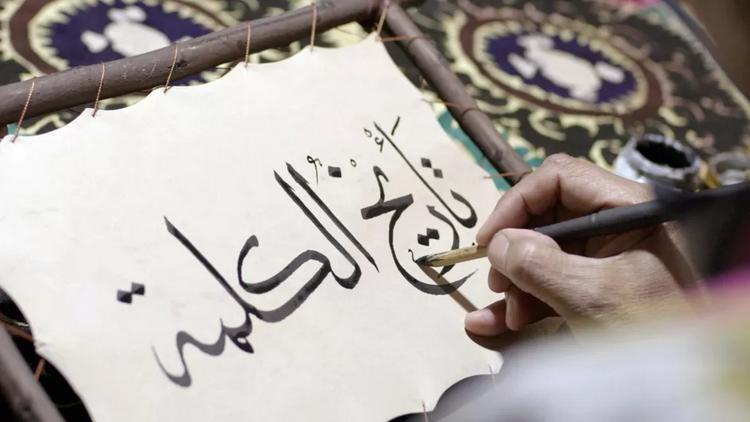 تَأْريْخُ الكلمة